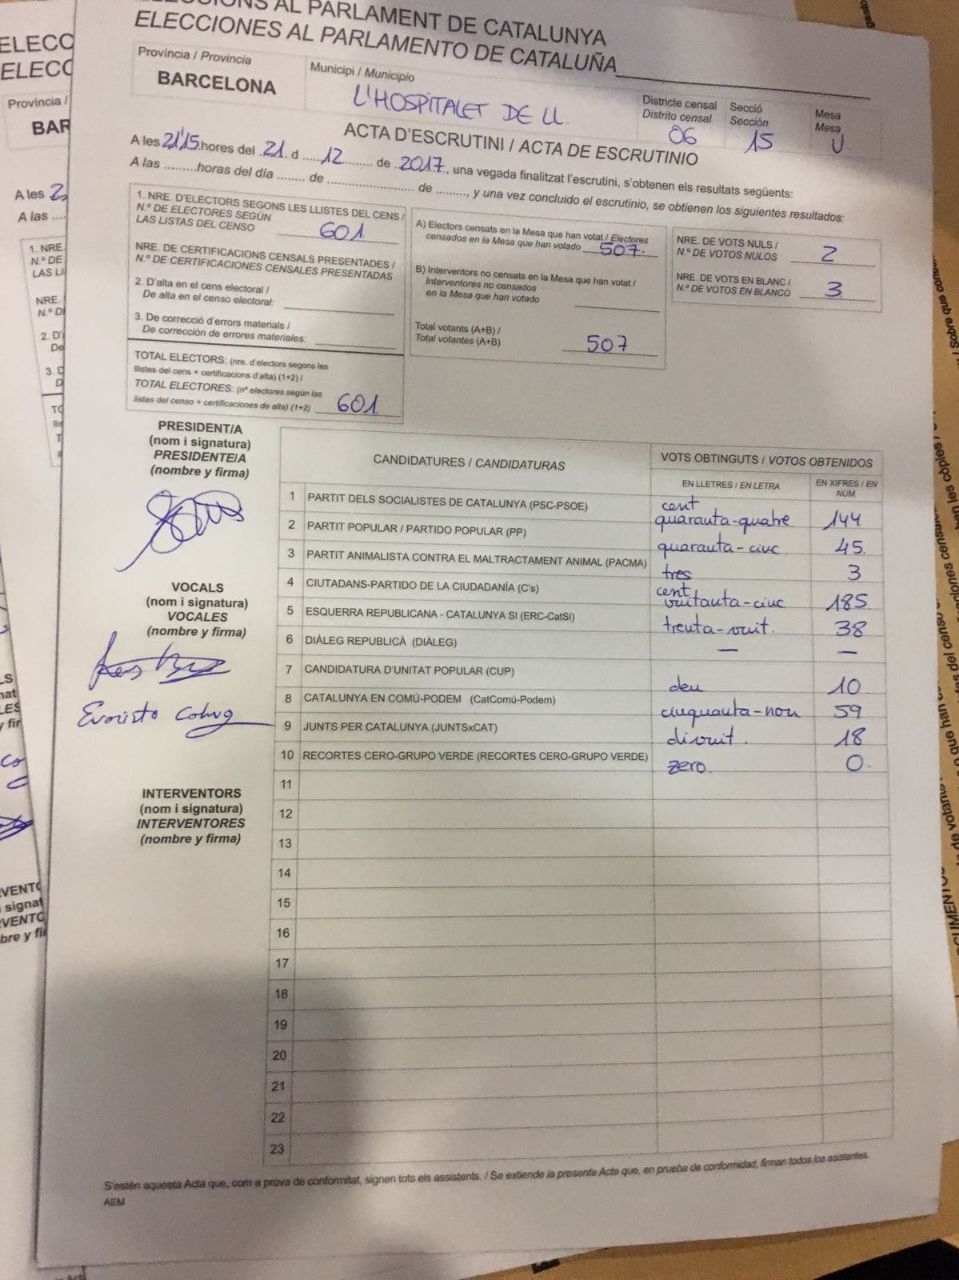 ELECCIONS AL PARLAMENT DE CATALUNYA
ELECCIONES AL PARLAMENTO DE CATALUÑA
Província / Provincia
BARCELONA
Municipi / Municipio
L'HOSPITALET DE LL.
Districte censal
Distrito censal
06
Secció
Sección
15
Mesa
Mesa
U
ACTA D'ESCRUTINI / ACTA DE ESCRUTINIO
A les 21'15 hores del 21. d ..... 12 ..... de 2017, una vegada finalitzat l'escrutini, s'obtenen els resultats següents:
A las .........horas del día ....... de ........................ de ........, y una vez concluido el escrutinio, se obtienen los siguientes resultados:
1. NRE. D'ELECTORS SEGONS LES LLISTES DEL CENS /
N.º DE ELECTORES SEGÚN
LAS LISTAS DEL CENSO 601
NRE. DE CERTIFICACIONS CENSALS PRESENTADES /
N.º DE CERTIFICACIONES CENSALES PRESENTADAS
2. D'alta en el cens electoral /
De alta en el censo electoral:
3. De correcció d'errors materials /
De corrección de errores materiales:
TOTAL ELECTORS: (nre. d'electors segons les
llistes del cens + certificacions d'alta) (1+2) /
TOTAL ELECTORES: (nº electores según las
listas del censo + certificaciones de alta) (1+2) 601
A) Electors censats en la Mesa que han votat / Electores
censados en la Mesa que han votado 507.
B) Interventors no censats en la Mesa que han votat /
Interventores no censados
en la Mesa que han votado
Total votants (A+B) /
Total votantes (A+B) 507
NRE. DE VOTS NULS /
N.º DE VOTOS NULOS 2
NRE. DE VOTS EN BLANC /
N.º DE VOTOS EN BLANCO 3
PRESIDENT/A
(nom i signatura)
PRESIDENTE/A
(nombre y firma)
VOCALS
(nom i signatura)
VOCALES
(nombre y firma)
INTERVENTORS
(nom i signatura)
INTERVENTORES
(nombre y firma)
CANDIDATURES / CANDIDATURAS
VOTS OBTINGUTS / VOTOS OBTENIDOS
EN LLETRES / EN LETRA
EN XIFRES / EN NÚM.
1 PARTIT DELS SOCIALISTES DE CATALUNYA (PSC-PSOE) cent quaranta-quatre 144
2 PARTIT POPULAR / PARTIDO POPULAR (PP) quaranta-cinc 45
3 PARTIT ANIMALISTA CONTRA EL MALTRACTAMENT ANIMAL (PACMA) tres 3
4 CIUTADANS-PARTIDO DE LA CIUDADANÍA (C's) cent vuitanta-cinc 185
5 ESQUERRA REPUBLICANA - CATALUNYA SI (ERC-CatSí) trenta-vuit. 38
6 DIÀLEG REPUBLICÀ (DIÀLEG) — —
7 CANDIDATURA D'UNITAT POPULAR (CUP) deu 10
8 CATALUNYA EN COMÚ-PODEM (CatComú-Podem) cinquanta-nou 59
9 JUNTS PER CATALUNYA (JUNTSxCAT) divuit. 18
10 RECORTES CERO-GRUPO VERDE (RECORTES CERO-GRUPO VERDE) zero. 0.
11
12
13
14
15
16
17
18
19
20
21
22
23
S'estén aquesta Acta que, com a prova de conformitat, signen tots els assistents. / Se extiende la presente Acta que, en prueba de conformidad, firman todos los asistentes.
AEM